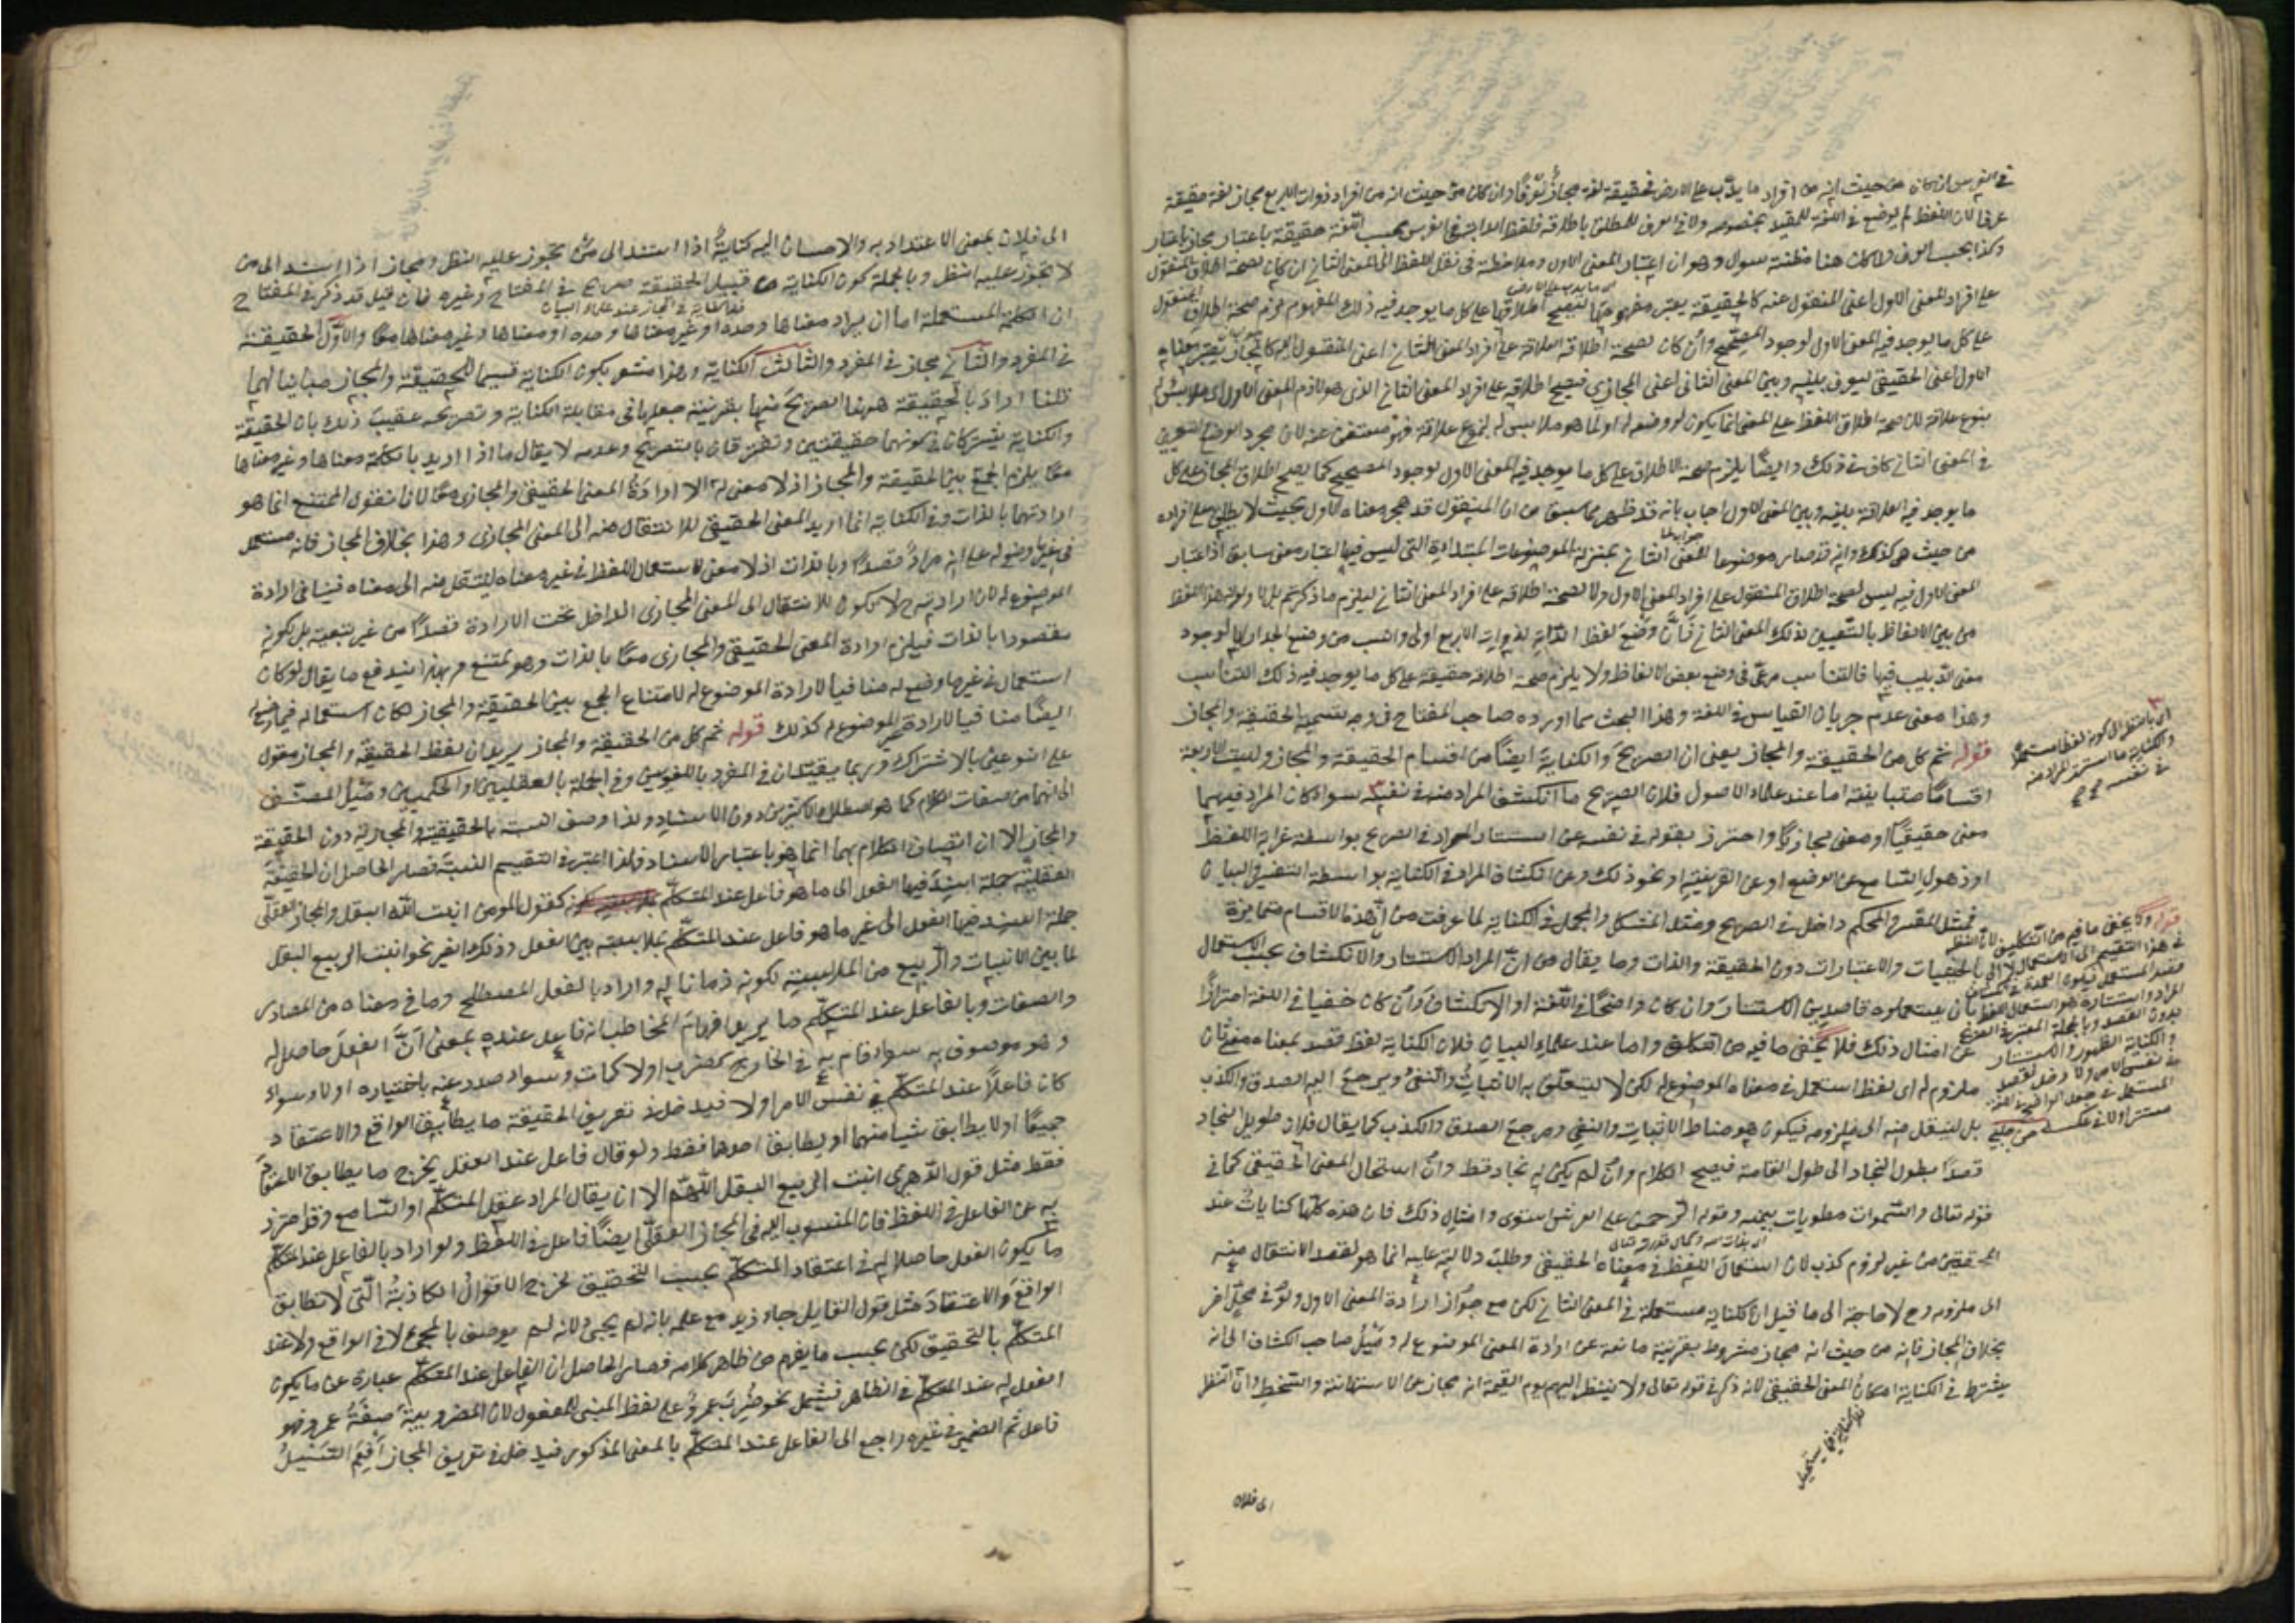 في الفرس ان كان من حيث انه من افراد ما يدب على الارض فحقيقة لغة مجاز عرفا وان كان من حيث انه من افراد ذوات الاربع مجاز لغة حقيقة
عرفا لان اللفظ لم يوضع في اللغة للمقيد بخصوصه ولا في العرف للمطلق باطلاقه فلفظ الدابة في الفرس بحسب اللغة حقيقة باعتبار مجاز باعتبار
وكذا بحسب العرف ولما كان هنا مظنة سوال وهو ان اعتبار المعنى الاول وملاحظته في نقل اللفظ الى المعنى الثاني ان كان لصحة اطلاق المنقول
على افراد المعنى الاول اعني المنقول عنه كالحقيقة يعتبر مفهومها لتصحيح اطلاقها على كل ما يوجد فيه ذلك المفهوم لزم صحة اطلاق المنقول
على كل ما يوجد فيه المعنى الاول لوجود المصحح وان كان لصحة اطلاقه على افراد المعنى الثاني اعني المنقول اليه كالمجاز يعتبر معناه
الاول اعني الحقيقي ليعرف بينه وبين المعنى الثاني اعني المجازي فيصح اطلاقه على افراد المعنى الثاني الذي هو لازم المعنى الاول اي ملابس له
بنوع علاقة لان صحة اطلاق اللفظ على المعنى انما يكون لوضعه له او لما هو ملابس له بنوع علاقة فهو مستغن عنه لان مجرد الوضع والتعيين
في المعنى الثاني كاف في ذلك وايضا يلزم صحة الاطلاق على كل ما يوجد فيه المعنى الاول لوجود المصحح كما يصح اطلاق المجاز على كل
ما يوجد فيه العلاقة بينه وبين المعنى الاول اجاب بانه قد ظهر مما سبق من ان المنقول قد هجر معناه الاول بحيث لا يطلق على افراده
من حيث هو كذلك وانه قد صار موضوعا للمعنى الثاني بمنزلة الموضوعات المبتداة التي ليس فيها اعتبار معنى سابق اذ اعتبار
المعنى الاول فيه ليس لصحة اطلاق المنقول على افراد المعنى الاول ولا لصحة اطلاقه على افراد المعنى الثاني ليلزم ما ذكرتم بل لاولوية هذا اللفظ
من بين الالفاظ بالتعيين لذلك المعنى الثاني فان وضع لفظ الدابة لذوات الاربع اولى وانسب من وضع الجدار لها لوجود
معنى الدبيب فيها فالتناسب مرعي في وضع بعض الالفاظ ولا يلزم صحة اطلاقه حقيقة على كل ما يوجد فيه ذلك التناسب
وهذا معنى عدم جريان القياس في اللغة وهذا البحث مما اورده صاحب المفتاح في وجه تسمية الحقيقة والمجاز
قوله ثم كل من الحقيقة والمجاز يعني ان الصريح والكناية ايضا من اقسام الحقيقة والمجاز وليست الاربعة
اقساما متباينة اما عند علماء الاصول فلان الصريح ما انكشف المراد منه في نفسه سواء كان المراد فيهما
معنى حقيقيا او معنى مجازيا واحترز بقوله في نفسه عن استتار المراد في الصريح بواسطة غرابة اللفظ
او ذهول السامع عن الوضع او عن القرينة او نحو ذلك وعن انكشاف المراد في الكناية بواسطة التفسير والبيان
فمثل المفسر والمحكم داخل في الصريح ومثل المشكل والمجمل في الكناية لما عرفت من ان هذه الاقسام متمايزة
بالحيثيات والاعتبارات دون الحقيقة والذات وما يقال من ان المراد الاستتار والانكشاف بحسب الاستعمال
بان يستعملوه قاصدين الاستتار وان كان واضحا في اللغة او الانكشاف وان كان خفيا في اللغة احترازا
عن امثال ذلك فلا يخفى ما فيه من التكلف واما عند علماء البيان فلان الكناية لفظ قصد بمعناه معنى ثان
ملزوم له اي لفظ استعمل في معناه الموضوع له لكن لا ليتعلق به الاثبات والنفي ويرجع اليه الصدق والكذب
بل لينتقل منه الى ملزومه فيكون هو مناط الاثبات والنفي ومرجع الصدق والكذب كما يقال فلان طويل النجاد
قصدا بطول النجاد الى طول القامة فيصح الكلام وان لم يكن له نجاد قط وان استحال المعنى الحقيقي كما في
قوله تعالى والسموات مطويات بيمينه وقوله الرحمن على العرش استوى وامثال ذلك فان هذه كلها كنايات عند
المحققين من غير لزوم كذب لان استعمال اللفظ في معناه الحقيقي وطلب دلالته عليه انما هو لقصد الانتقال منه
الى ملزومه وح لا حاجة الى ما قيل ان الكناية مستعملة في المعنى الثاني لكن مع جواز ارادة المعنى الاول ولو في محل اخر
بخلاف المجاز فانه من حيث انه مجاز مشروط بقرينة مانعة عن ارادة المعنى الموضوع له وميل صاحب الكشاف الى انه
يشترط في الكناية امكان المعنى الحقيقي لانه ذكر في قوله تعالى ولا ينظر اليهم يوم القيمة انه مجاز عن الاستهانة والسخط وان النظر
الى فلان
اي بالنظر الى كونه لفظا مستعملا
والكناية ما استتر المراد منه
في نفسه
قوله ولا يخفى ما فيه من التكلف لان النظر
في هذا التقسيم الى الاستعمال
الى فلان بمعنى الاعتداد به والاحسان اليه كناية اذا استند الى من يجوز عليه النظر ومجاز اذا اسند الى من
لا يجوز عليه النظر وبالجملة كون الكناية من قبيل الحقيقة صريح في المفتاح وغيره فان قيل قد ذكر في المفتاح
ان الكلمة المستعملة اما ان يراد معناها وحده او غير معناها وحده او معناها وغير معناها معا والاول الحقيقة
في المفرد والثاني مجاز في المفرد والثالث الكناية وهذا مشعر بكون الكناية قسيما للحقيقة والمجاز مباينا لهما
قلنا اراد بالحقيقة ههنا الصريح منها بقرينة جعلها في مقابلة الكناية وتصريحه عقيب ذلك بان الحقيقة
والكناية يشتركان في كونهما حقيقتين وتفترقان بالتصريح وعدمه لا يقال ما اذا اريد بالكلمة معناها وغير معناها
معا يلزم الجمع بين الحقيقة والمجاز اذ لا معنى له الا ارادة المعنى الحقيقي والمجازي معا لانا نقول الممتنع انما هو
ارادتهما بالذات وفي الكناية انما اريد المعنى الحقيقي للانتقال منه الى المعنى المجازي وهذا بخلاف المجاز فانه مستعمل
في غير ما وضع له على انه مراد قصدا وبالذات اذ لا معنى لاستعمال اللفظ في غير معناه لينتقل منه الى معناه فينافي ارادة
الموضوع له لان ارادته ح لا تكون للانتقال الى المعنى المجازي الداخل تحت الارادة قصدا من غير تبعية بل لكونه
مقصودا بالذات فيلزم ارادة المعنى الحقيقي والمجازي معا بالذات وهو ممتنع وبهذا يندفع ما يقال لو كان
استعمال في غير ما وضع له منافيا لارادة الموضوع له لامتناع الجمع بين الحقيقة والمجاز لكان استعماله فيما وضع له
ايضا منافيا لارادة غير الموضوع له كذلك قوله ثم كل من الحقيقة والمجاز يريد ان لفظ الحقيقة والمجاز مقول
على النوعين بالاشتراك وربما يقيدان في المفرد باللغويين وفي الجملة بالعقليين او الحكميين وميل المصنف
الى انهما من صفات الكلام كما هو اصطلاح الاكثرين دون الاسناد ولذا وصف النسبة بالحقيقية والمجازية دون الحقيقة
والمجاز الا ان اتصاف الكلام بهما انما هو باعتبار الاسناد فلذا اعتبر في التقسيم النسبة فصار الحاصل ان الحقيقة
العقلية جملة اسند فيها الفعل الى ما هو فاعل عند المتكلم كقول المومن انبت الله البقل والمجاز العقلي
جملة اسند فيها الفعل الى غير ما هو فاعل عند المتكلم لملابسة بين الفعل وذلك الغير نحو انبت الربيع البقل
لما بين الانبات والربيع من الملابسة لكونه زمانا له واراد بالفعل المصطلح وما في معناه من المصادر
والصفات وبالفاعل عند المتكلم ما يريد افهام المخاطب انه فاعل عنده بمعنى ان الفعل حاصل له
وهو موصوف به سواء قام به في الخارج كضرب اولا كمات وسواء صدر عنه باختياره اولا وسواء
كان فاعلا عند المتكلم في نفس الامر اولا فيدخل في تعريف الحقيقة ما يطابق الواقع والاعتقاد
جميعا او لا يطابق شيا منهما او يطابق احدهما فقط ولو قال فاعل عند العقل يخرج ما يطابق الاعتقاد
فقط مثل قول الدهري انبت الربيع البقل اللهم الا ان يقال المراد عقل المتكلم او السامع وقد احترز
به عن الفاعل في اللفظ فان المنسوب اليه في المجاز العقلي ايضا فاعل في اللفظ ولو اراد بالفاعل عند المتكلم
ما يكون الفعل حاصلا له في اعتقاد المتكلم بحسب التحقيق لخرج الاقوال الكاذبة التي لا تطابق
الواقع والاعتقاد مثل قول القايل جاء زيد مع علمه بانه لم يجئ لانه لم يوصف بالمجئ لا في الواقع ولا عند
المتكلم بالتحقيق لكن بحسب ما يفهم من ظاهر كلامه فصار الحاصل ان الفاعل عند المتكلم عبارة عن ما يكون
الفعل له عند المتكلم في الظاهر فيشمل نحو ضرب عمرو على لفظ المبني للمفعول لان المضروبية صفة عمرو فهو
فاعل ثم الضمير في غيره راجع الى الفاعل عند المتكلم بالمعنى المذكور فيدخل في تعريف المجاز